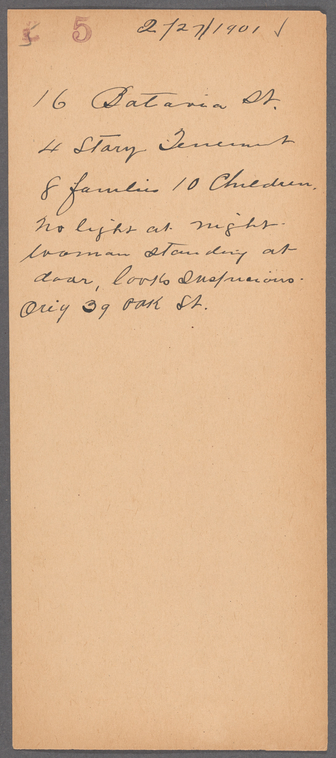 5 2/27/1901
16 Batavia St.
4 Story Tenement
8 families 10 Children.
no light at night.
woman standing at
door, looks suspicious.
Orig 39 Oak St.